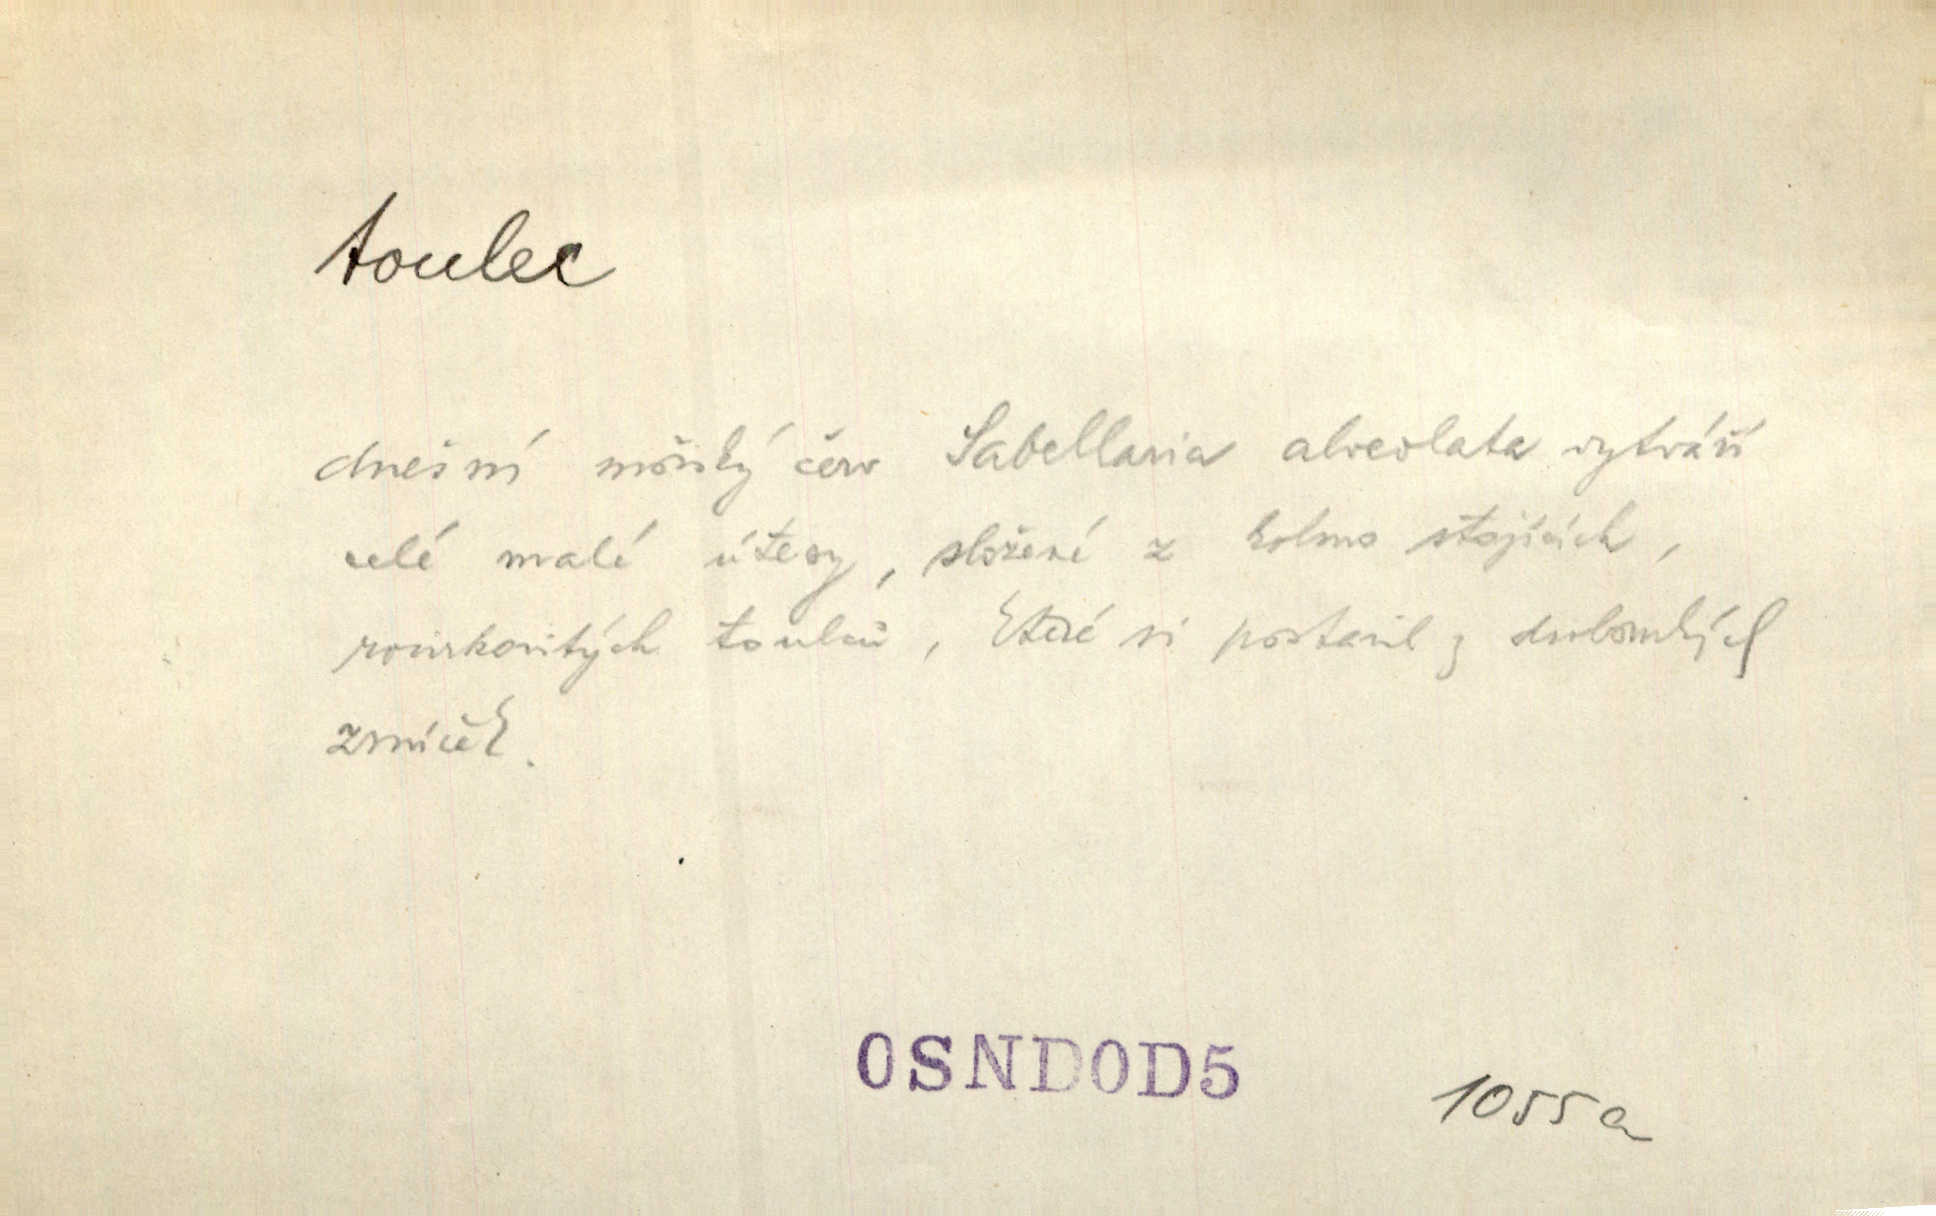 toulec
dnešní mořský červ Sabellaria alveolata vytváří
celé malé útesy, složené z kolmo stojících,
rourkovitých toulců, které si postavil z drobounkých
zrníček.
0SND0D5
1055a